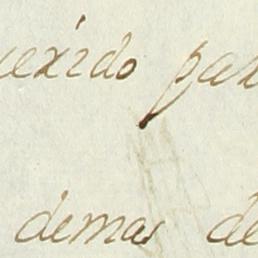 uexido pax
demas de